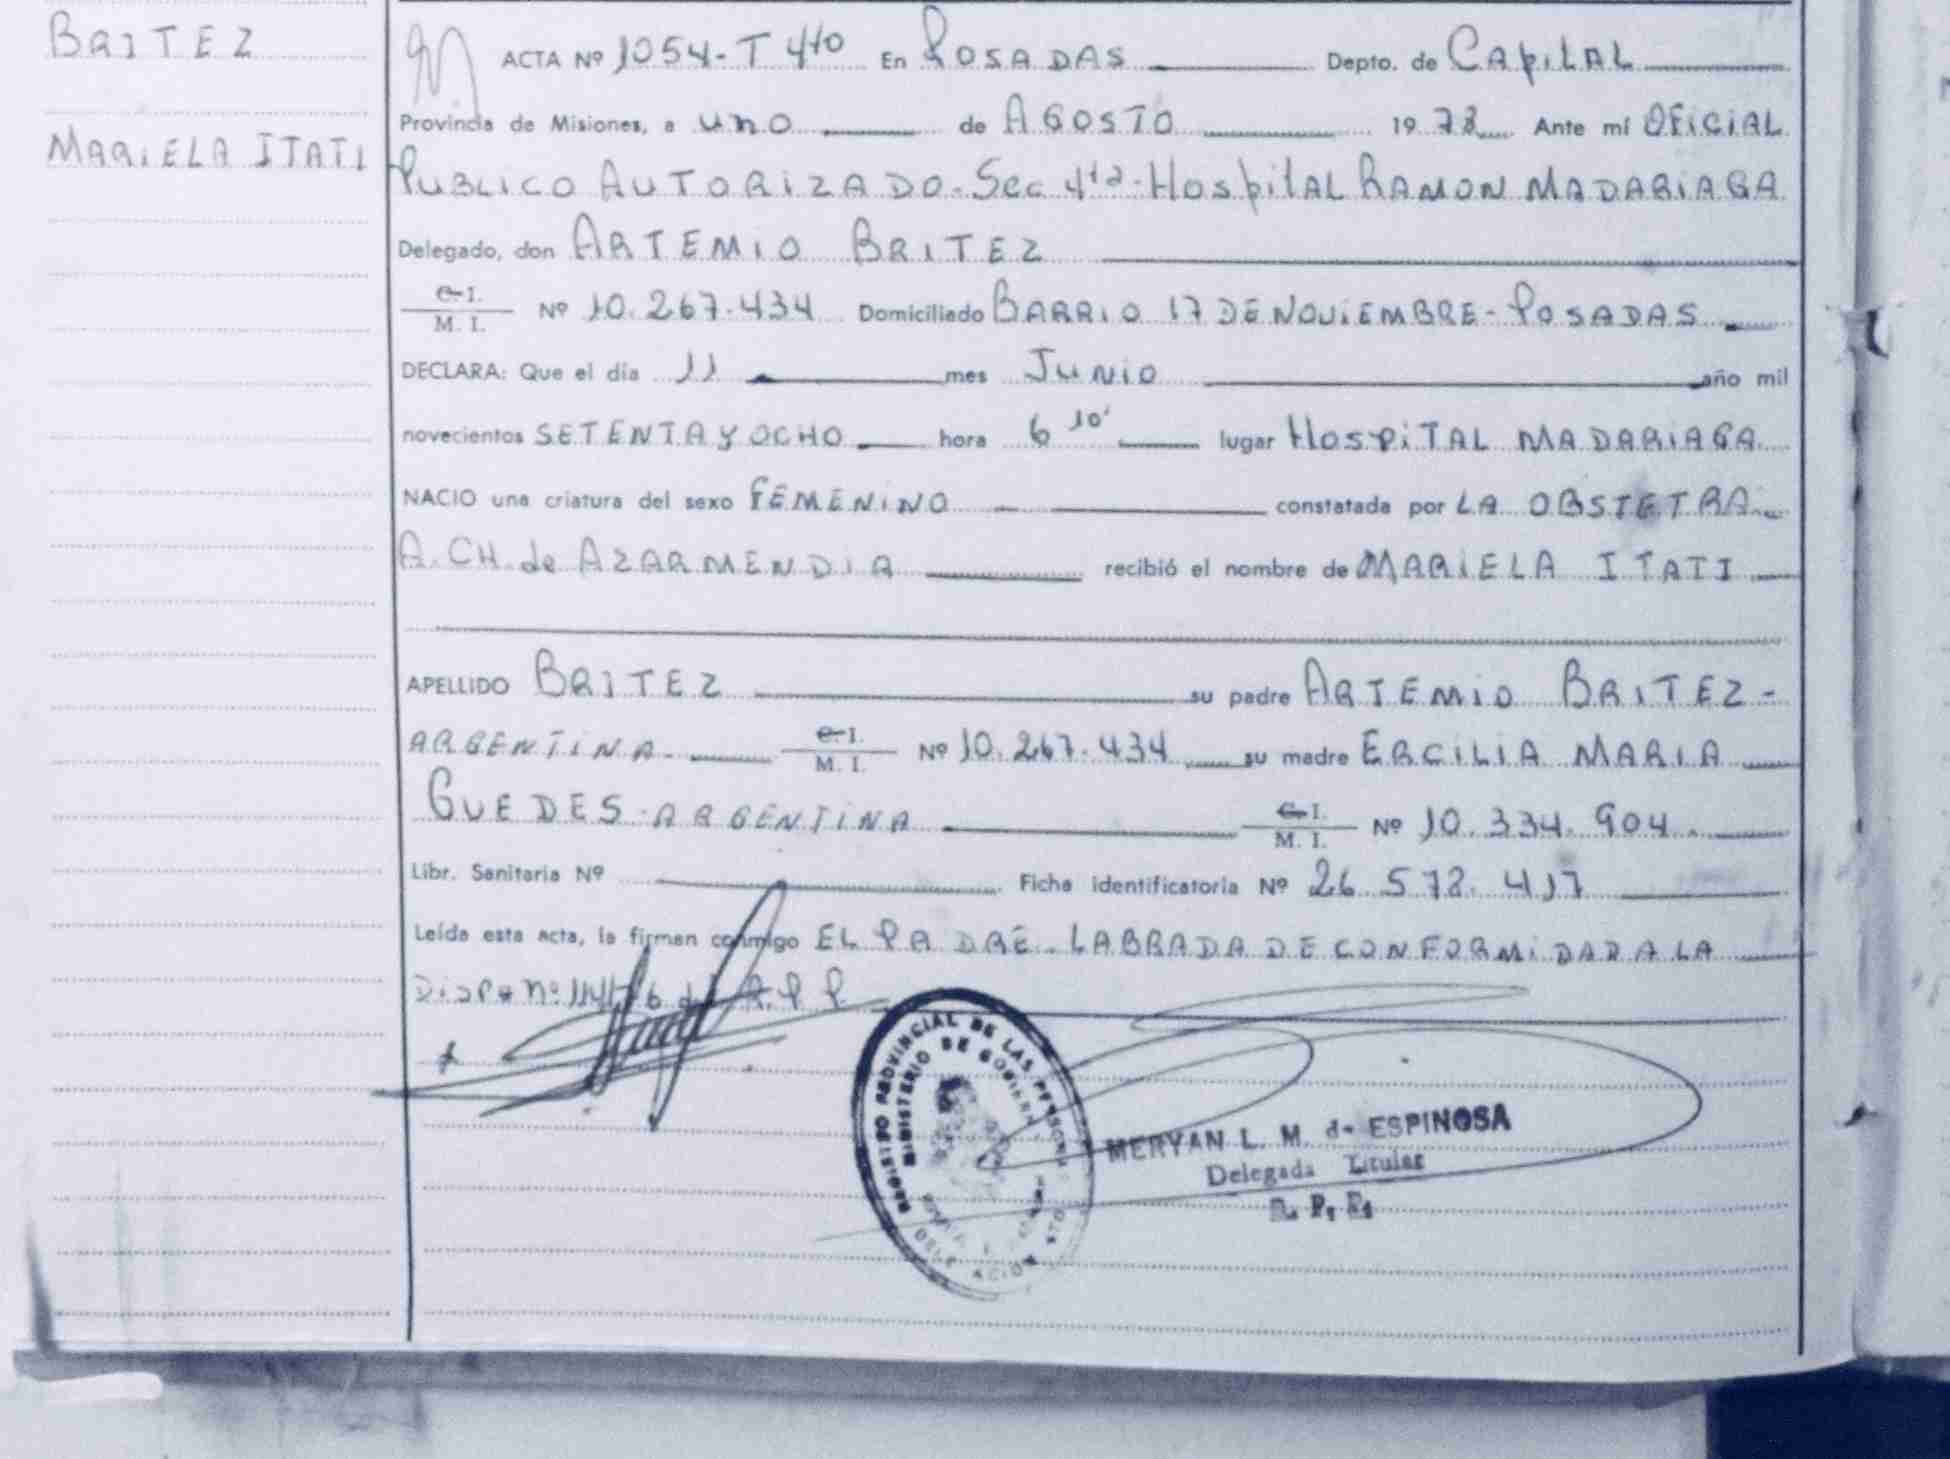 BRITEZ
MARIELA ITATI
ACTA Nº 1054-T 4to En POSADAS Depto. de CAPITAL
Provincia de Misiones, a uno de AGOSTO 1978 Ante mí OFICIAL
PUBLICO AUTORIZADO-Sec 4ta-HOSPITAL RAMON MADARIAGA
Delegado, don ARTEMIO BRITEZ
C. I.
M. I. Nº 10.267.434 Domiciliado BARRIO 17 DE NOVIEMBRE-POSADAS
DECLARA: Que el día 11 mes JUNIO año mil
novecientos SETENTA Y OCHO hora 6 10' lugar HOSPITAL MADARIAGA
NACIO una criatura del sexo FEMENINO constatada por LA OBSTETRA
A. CH. de AZARMENDIA recibió el nombre de MARIELA ITATI
APELLIDO BRITEZ su padre ARTEMIO BRITEZ-
ARGENTINA C. I.
M. I. Nº 10.267.434 su madre ERCILIA MARIA
GUEDES-ARGENTINA C. I.
M. I. Nº 10.334.904
Libr. Sanitaria Nº Ficha identificatoria Nº 26.572.417
Leída esta acta, la firman conmigo EL PADRE-LABRADA DE CONFORMIDAD A LA
Dispo Nº
REGISTRO PROVINCIAL DE LAS PERSONAS
MINISTERIO DE GOBIERNO
MERYAN L. M. de ESPINOSA
Delegada Titular